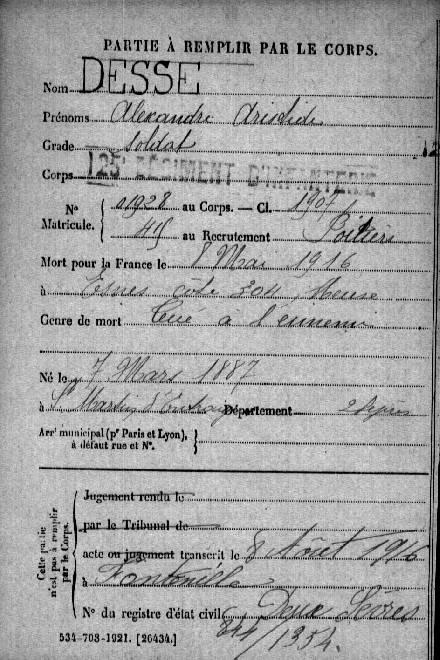 PARTIE À REMPLIR PAR LE CORPS.
Nom DESSE
Prénoms Alexandre Aristide
Grade Soldat
Corps 125e RÉGIMENT D'INFANTERIE
No Matricule. { 01928 au Corps. — Cl. 1907
415 au Recrutement Poitiers
Mort pour la France le 8 Mai 1916
à Esnes cote 304 Meuse
Genre de mort Tué à l'ennemi
Né le 7 Mars 1887
à St Martin d'Entraigues Département 2 Sèvres
Arrt municipal (pr Paris et Lyon), à défaut rue et No. }
Cette partie n'est pas à remplir par le Corps.
Jugement rendu le
par le Tribunal de
acte ou jugement transcrit le 8 Août 1916
à Fontenille
Deux Sèvres
No du registre d'état civil
344/1354.
534-708-1921. [26434.]